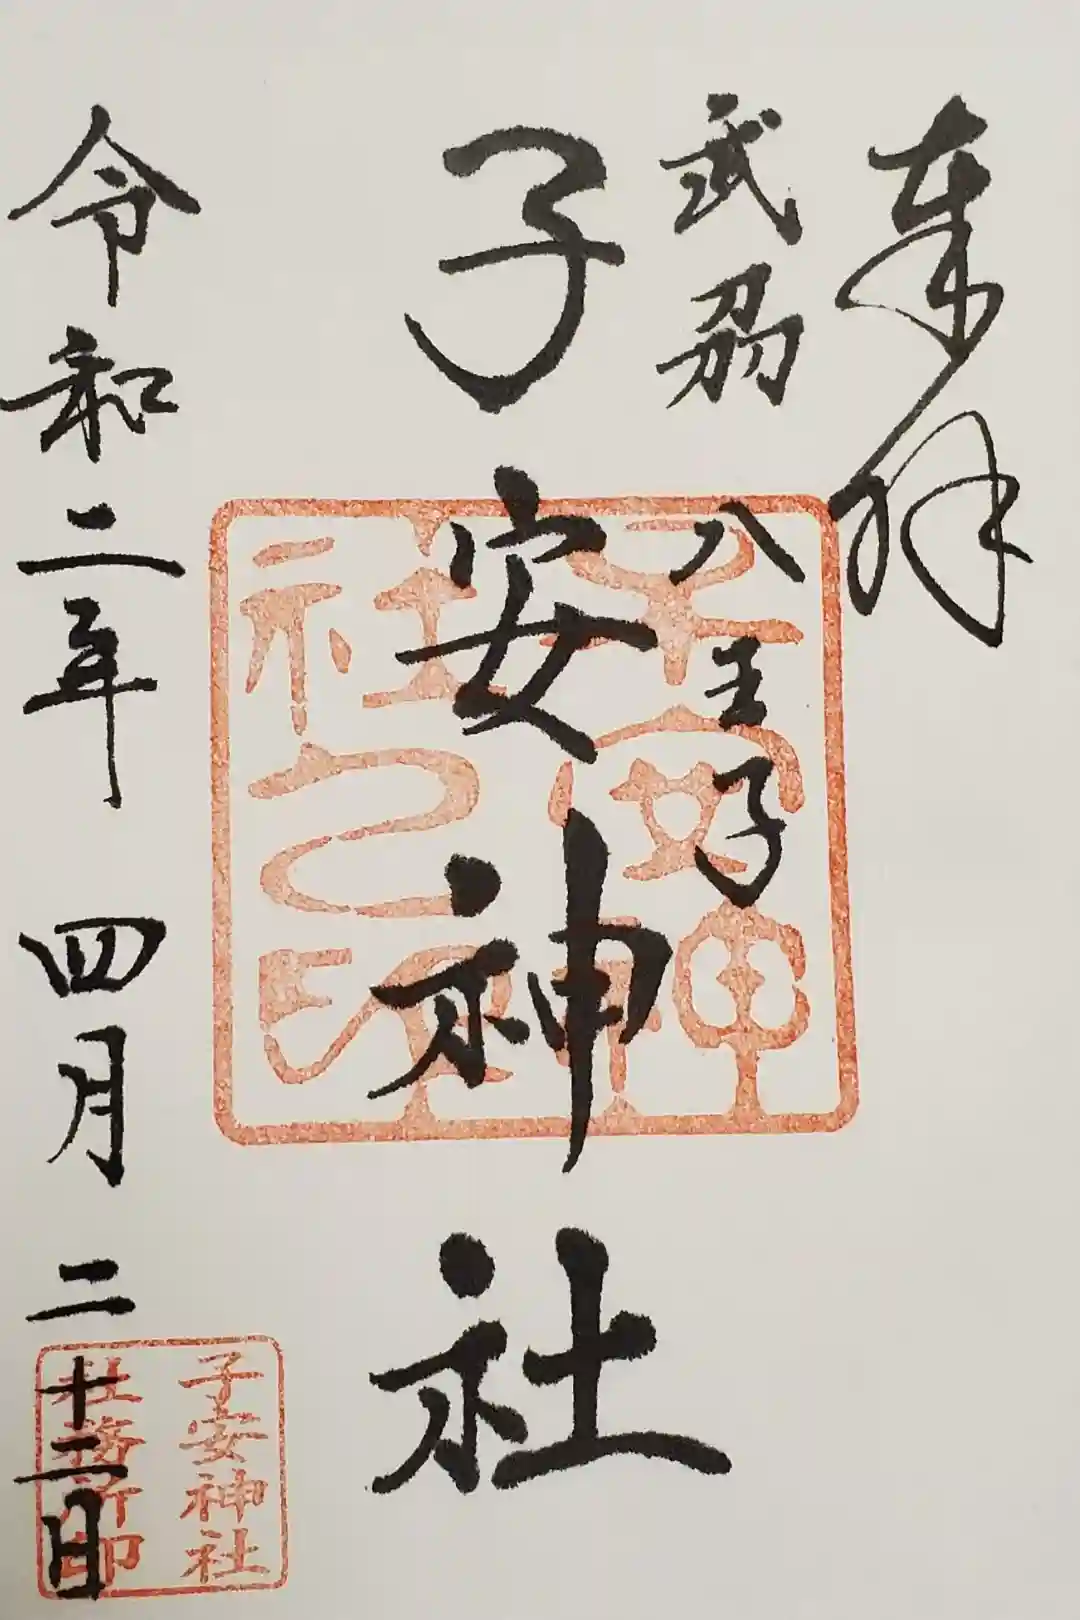 奉拝
武州八王子
子安神社
令和二年 四月 二十二日
子安神社之印
子安神社
社務所印